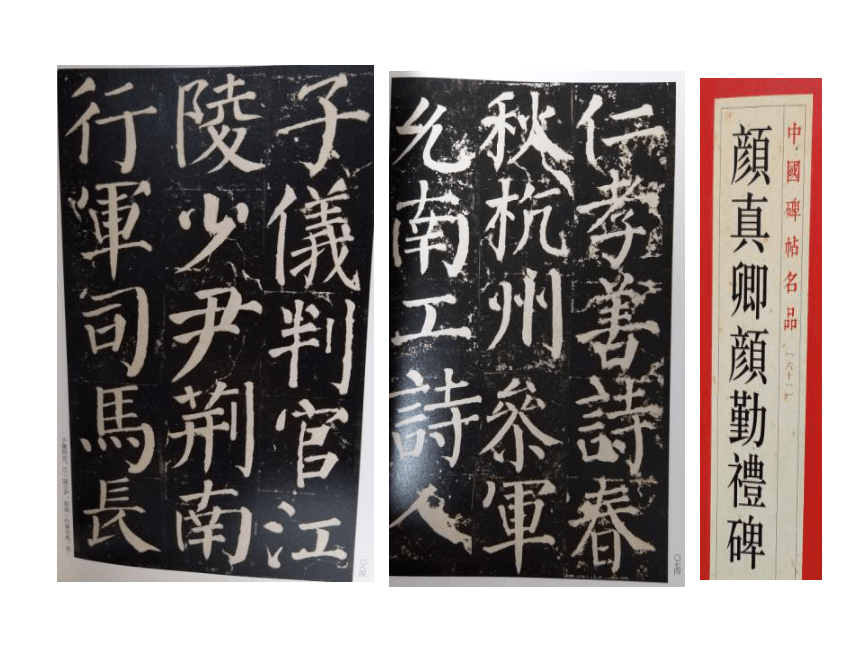 中國碑帖名品
[六十一]
顔真卿顔勤禮碑
仁孝善詩春
秋杭州叅軍
允南工詩人
〇七四
子儀判官江
陵少尹荆南
行軍司馬長